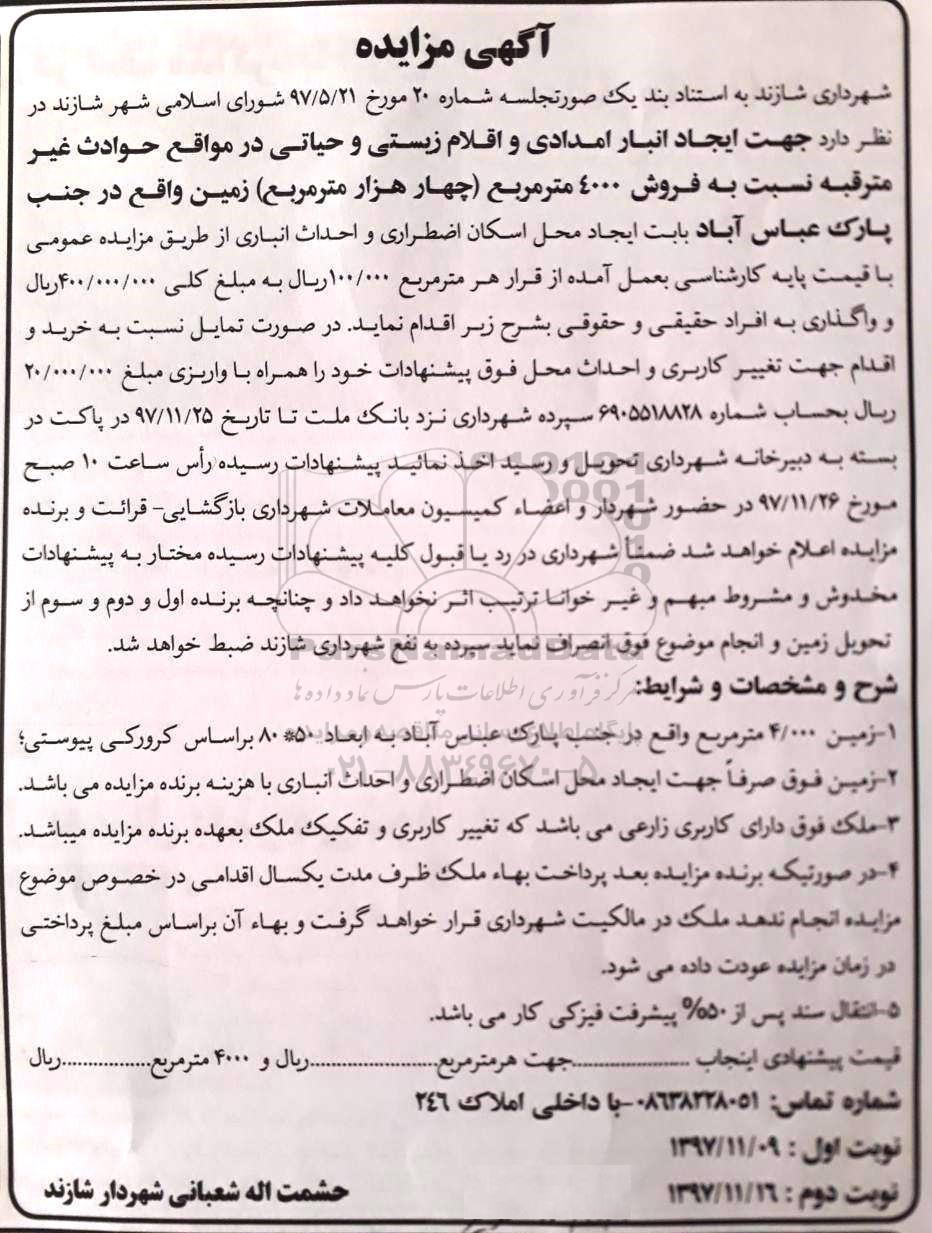 آگهی مزایده
شهرداری شازند به استناد بند یک صورتجلسه شماره ۲۰ مورخ ۹۷/۵/۲۱ شورای اسلامی شهر شازند در
نظر دارد جهت ایجاد انبار امدادی و اقلام زیستی و حیاتی در مواقع حوادث غیر
مترقبه نسبت به فروش ۴۰۰۰ مترمربع (چهار هزار مترمربع) زمین واقع در جنب
پارک عباس آباد بابت ایجاد محل اسکان اضطراری و احداث انباری از طریق مزایده عمومی
با قیمت پایه کارشناسی بعمل آمده از قرار هر مترمربع ۱۰۰/۰۰۰ریال به مبلغ کلی ۴۰۰/۰۰۰/۰۰۰ریال
و واگذاری به افراد حقیقی و حقوقی بشرح زیر اقدام نماید. در صورت تمایل نسبت به خرید و
اقدام جهت تغییر کاربری و احداث محل فوق پیشنهادات خود را همراه با واریزی مبلغ ۲۰/۰۰۰/۰۰۰
ریال بحساب شماره ۶۹۰۵۵۱۸۸۲۸ سپرده شهرداری نزد بانک ملت تا تاریخ ۹۷/۱۱/۲۵ در پاکت در
بسته به دبیرخانه شهرداری تحویل و رسید اخذ نمائید پیشنهادات رسیده رأس ساعت ۱۰ صبح
مورخ ۹۷/۱۱/۲۶ در حضور شهردار و اعضاء کمیسیون معاملات شهرداری بازگشایی- قرائت و برنده
مزایده اعلام خواهد شد ضمناً شهرداری در رد یا قبول کلیه پیشنهادات رسیده مختار به پیشنهادات
مخدوش و مشروط مبهم و غیر خوانا ترتیب اثر نخواهد داد و چنانچه برنده اول و دوم و سوم از
تحویل زمین و انجام موضوع فوق انصراف نماید سپرده به نفع شهرداری شازند ضبط خواهد شد.
ParsNamadData
مرکز فرآوری اطلاعات پارس نماد داده ها
شرح و مشخصات و شرایط:
۱-زمین ۴/۰۰۰ مترمربع واقع در جنب پارک عباس آباد به ابعاد ۵۰*۸۰ براساس کروکی پیوستی؛
۰۲۱-۸۸۳۴۹۶۷۰-۵
۲-زمین فوق صرفاً جهت ایجاد محل اسکان اضطراری و احداث انباری با هزینه برنده مزایده می باشد.
۳-ملک فوق دارای کاربری زارعی می باشد که تغییر کاربری و تفکیک ملک بعهده برنده مزایده میباشد.
۴-در صورتیکه برنده مزایده بعد پرداخت بهاء ملک ظرف مدت یکسال اقدامی در خصوص موضوع
مزایده انجام ندهد ملک در مالکیت شهرداری قرار خواهد گرفت و بهاء آن براساس مبلغ پرداختی
در زمان مزایده عودت داده می شود.
۵-انتقال سند پس از ۵۰% پیشرفت فیزکی کار می باشد.
قیمت پیشنهادی اینجاب ......................جهت هرمترمربع........................ریال و ۴۰۰۰ مترمربع.................ریال
شماره تماس: ۰۸۶۳۸۲۲۸۰۵۱-با داخلی املاک ۲۴۶
نوبت اول : ۱۳۹۷/۱۱/۰۹
نوبت دوم : ۱۳۹۷/۱۱/۱۶
حشمت اله شعبانی شهردار شازند